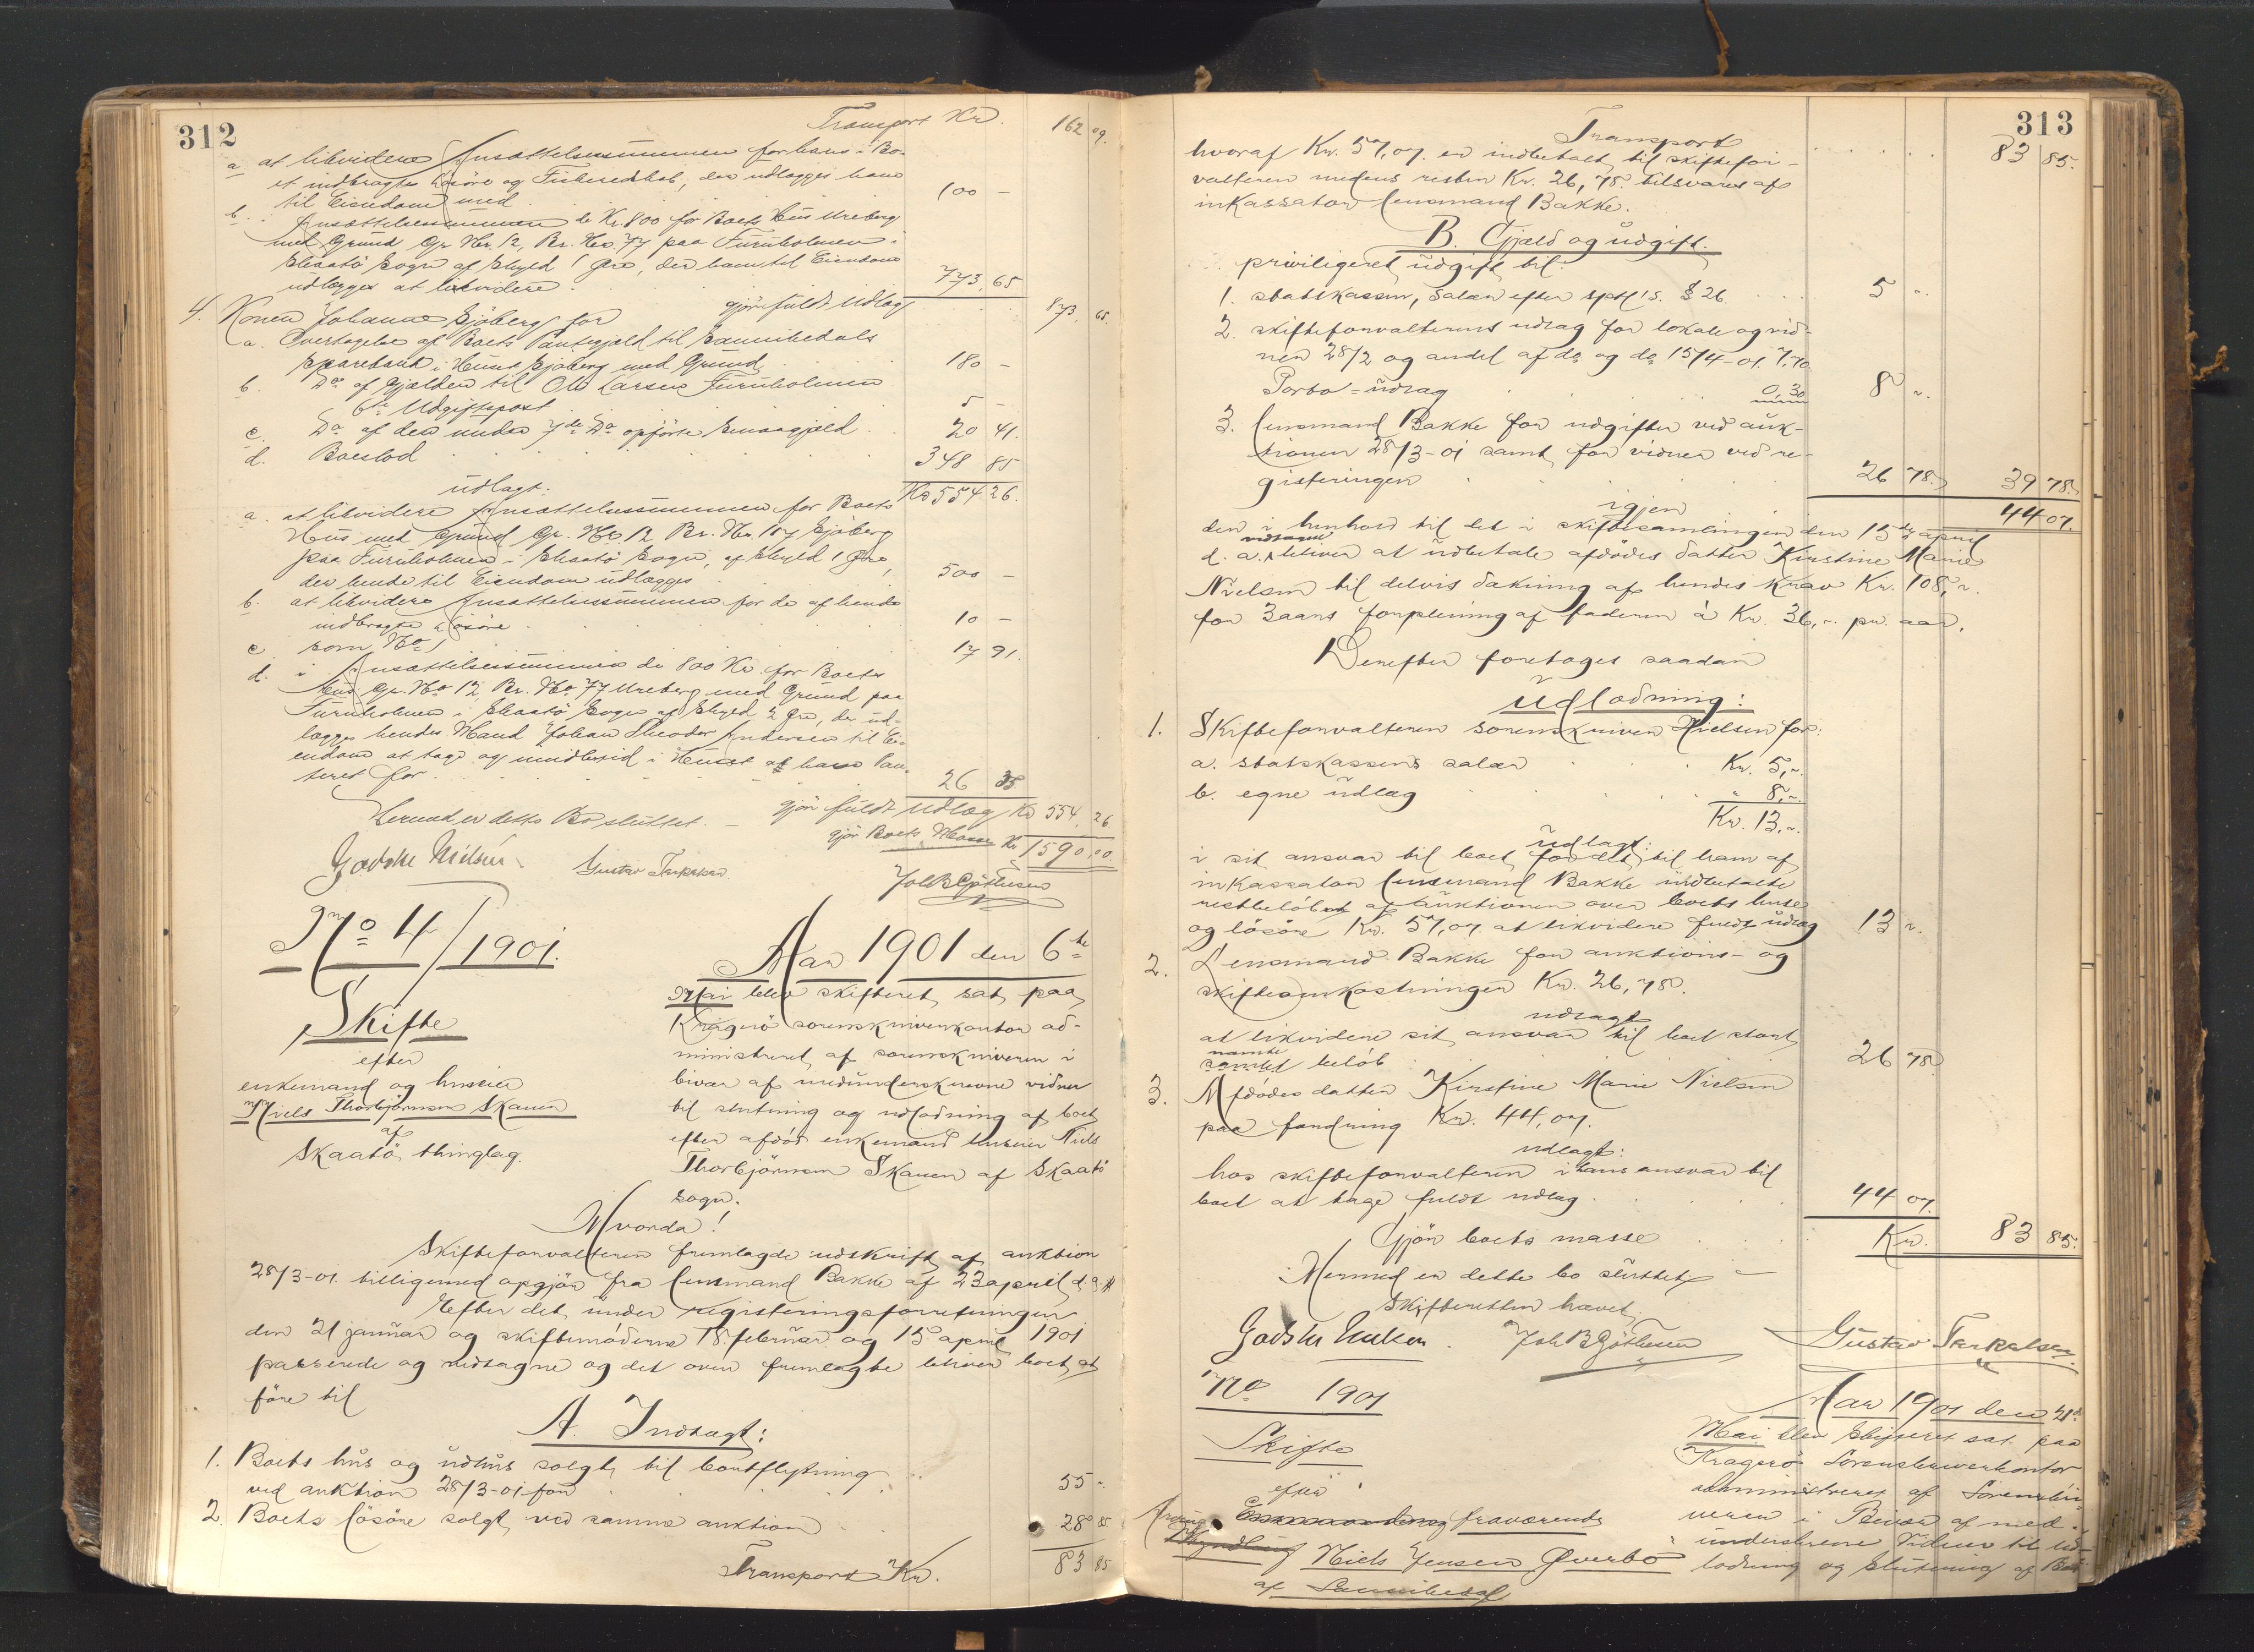 312
Transport Kr. 162 09.
a at likvidere Ansættelsessummen for hans i Bo-
et indbragte Løsøre og Fiskeredskab, der udlægges ham
til Eiendom med 100 -
b. i Ansættelsessummen de Kr. 800 for Boets Hus Ureberg
med Grund Gr. Nr. 12, Br. No. 77 paa Furuholmen i
Skaatø Sogn af Skyld 1 Øre, der ham til Eiendom
udlægges at likvidere 773. 65
gjør fuldt Udlæg 873. 65.
4. Konen Johanne Sjøberg for
a. Overtagelse af Boets Pantegjæld til Sannikedals
Sparebank i Huset Sjøberg med Grund 180 -
b. Do af Gjælden til Ole Larsen Furuholmen
6te Udgiftspost 5 -
c. Do af den under 7de Do opførte Smaagjæld 20 41.
d. Boeslod 348 85
Kr 554 26.
udlagt:
a. at likvidere Ansættelsessummen for Boets
Hus med Grund Gr. No. 12 Br. No. 157 Sjøberg
paa Furuholmen i Skaatø Sogn, af Skyld 1 Øre,
der hende til Eiendom udlægges 500 -
b. at likvidere Ansættelsessummen for de af hende
indbragte Løsøre 10 -
c. som No 1 17 91.
d. i Ansættelsessummen de 800 Kr. for Boets
Hus Gr. No 12 Br. No 77 Ureberg med Grund paa
Furuholmen i Skaatø Sogn af Skyld 2 Øre, der ud-
lægges hendes Mand Johan Theodor Andersen til Ei-
endom at tage og
teret for 26 35
gjør fuldt Udlæg Kr 554. 26
Hermed er dette Bo sluttet. -
gjør Boets Masse Kr 1590,00.
Godske Nielsen Gustav Terkelsen Joh B Gjøthesen
No 4/1901.
Skifte
efter
enkemand og huseier
Niels Thorbjørnsen Skauen
af
Skaatø thinglag.
Aar 1901 den 6te
Mai blev skifteret sat paa
Kragerø sorenskriverkontor ad-
ministreret af sorenskriveren i
bivær af medunderskrevne vidner
til slutning og udlodning af boet
efter afdød enkemand huseier Niels
Thorbjørnsen Skauen af Skaatø
sogn.
Hvorda!
Skifteforvalteren fremlagde udskrift af auktion
28/3-01. tilligemed opgjør fra lensmand Bakke af 23 april d. a.
Efter det under registeringsforretningen
den 21 januar og skiftemøderne 18. februar og 15 april 1901
passerede og vedtagne og det oven fremlagte bliver boet at
føre til
A. Indtægt:
1. Boets hus og udhus solgt til bortflytning
ved auktion 28/3-01 for 55 ".
2. Boets løsøre solgt ved samme auktion 28 85
Transport Kr. 83 85
313
Transport 83 85.
hvoraf Kr. 57,07. er indbetalt til skiftefor-
valteren medens resten Kr. 26,78. tilsvares af
inkassator lensmand Bakke.
B. Gjæld og udgift.
priviligeret udgift til:
1. statskassen, salær efter sptl. 15. § 26 5 ".
2. skifteforvalterens udlæg for lokale og vid-
ner 28/2 og andel af do og do 15/4-01. 7,70
Porto-udlæg 0,30 8 ".
3. lensmand Bakke for udgifter ved auk-
tionen 28/3-01 samt for vidner ved re-
gisteringen 26 78. 39 78.
igjen 44 07.
der i henhold til det i skiftesamlingen den 15de april
d. a. vedtagne bliver at udbetale afdødes datter Kirstine Marie
Nielsen til delvis dækning af hendes krav Kr. 108,".
for 3 aars forpleining af faderen à Kr. 36,". pr. aar.
Derefter foretoges saadan
Udlodning:
1. Skifteforvalteren sorenskriver Nielsen for:
a. statskassens salær Kr. 5,".
b. egne udlæg " 8,".
Kr. 13,".
udlagt:
i sit ansvar til boet for det til ham af
inkassator lensmand Bakke indbetalte
restbeløb af auktionen over boets huse
og løsøre Kr. 57,07. at likvidere fuldt udlæg 13 ".
2. Lensmand Bakke for auktions- og
skifteomkostninger Kr. 26,78.
udlagt
at likvidere sit ansvar til boet stort
samme beløb 26 78
3. Afdødes datter Kirstine Marie Nielsen
paa fordring Kr. 44,07.
udlagt:
hos skifteforvalteren i hans ansvar til
boet at tage fuldt udlæg 44 07.
Gjør boets masse Kr. 83 85.
Hermed er dette bo sluttet. -
Skifteretten hævet.
Godske Nielsen. Joh B Gjøthesen Gustav Terkelsen.
No 1901
Skifte
efter
fraværende
Niels Jensen Øverbø
af Sannikedal
Aar 1901 den 21de
Mai blev Skifteret sat paa
Kragerø Sorenskriverkontor
administreret af Sorenskri-
veren i Bivær af med-
underskrevne Vidner til Ud-
lodning og Slutning af Boet